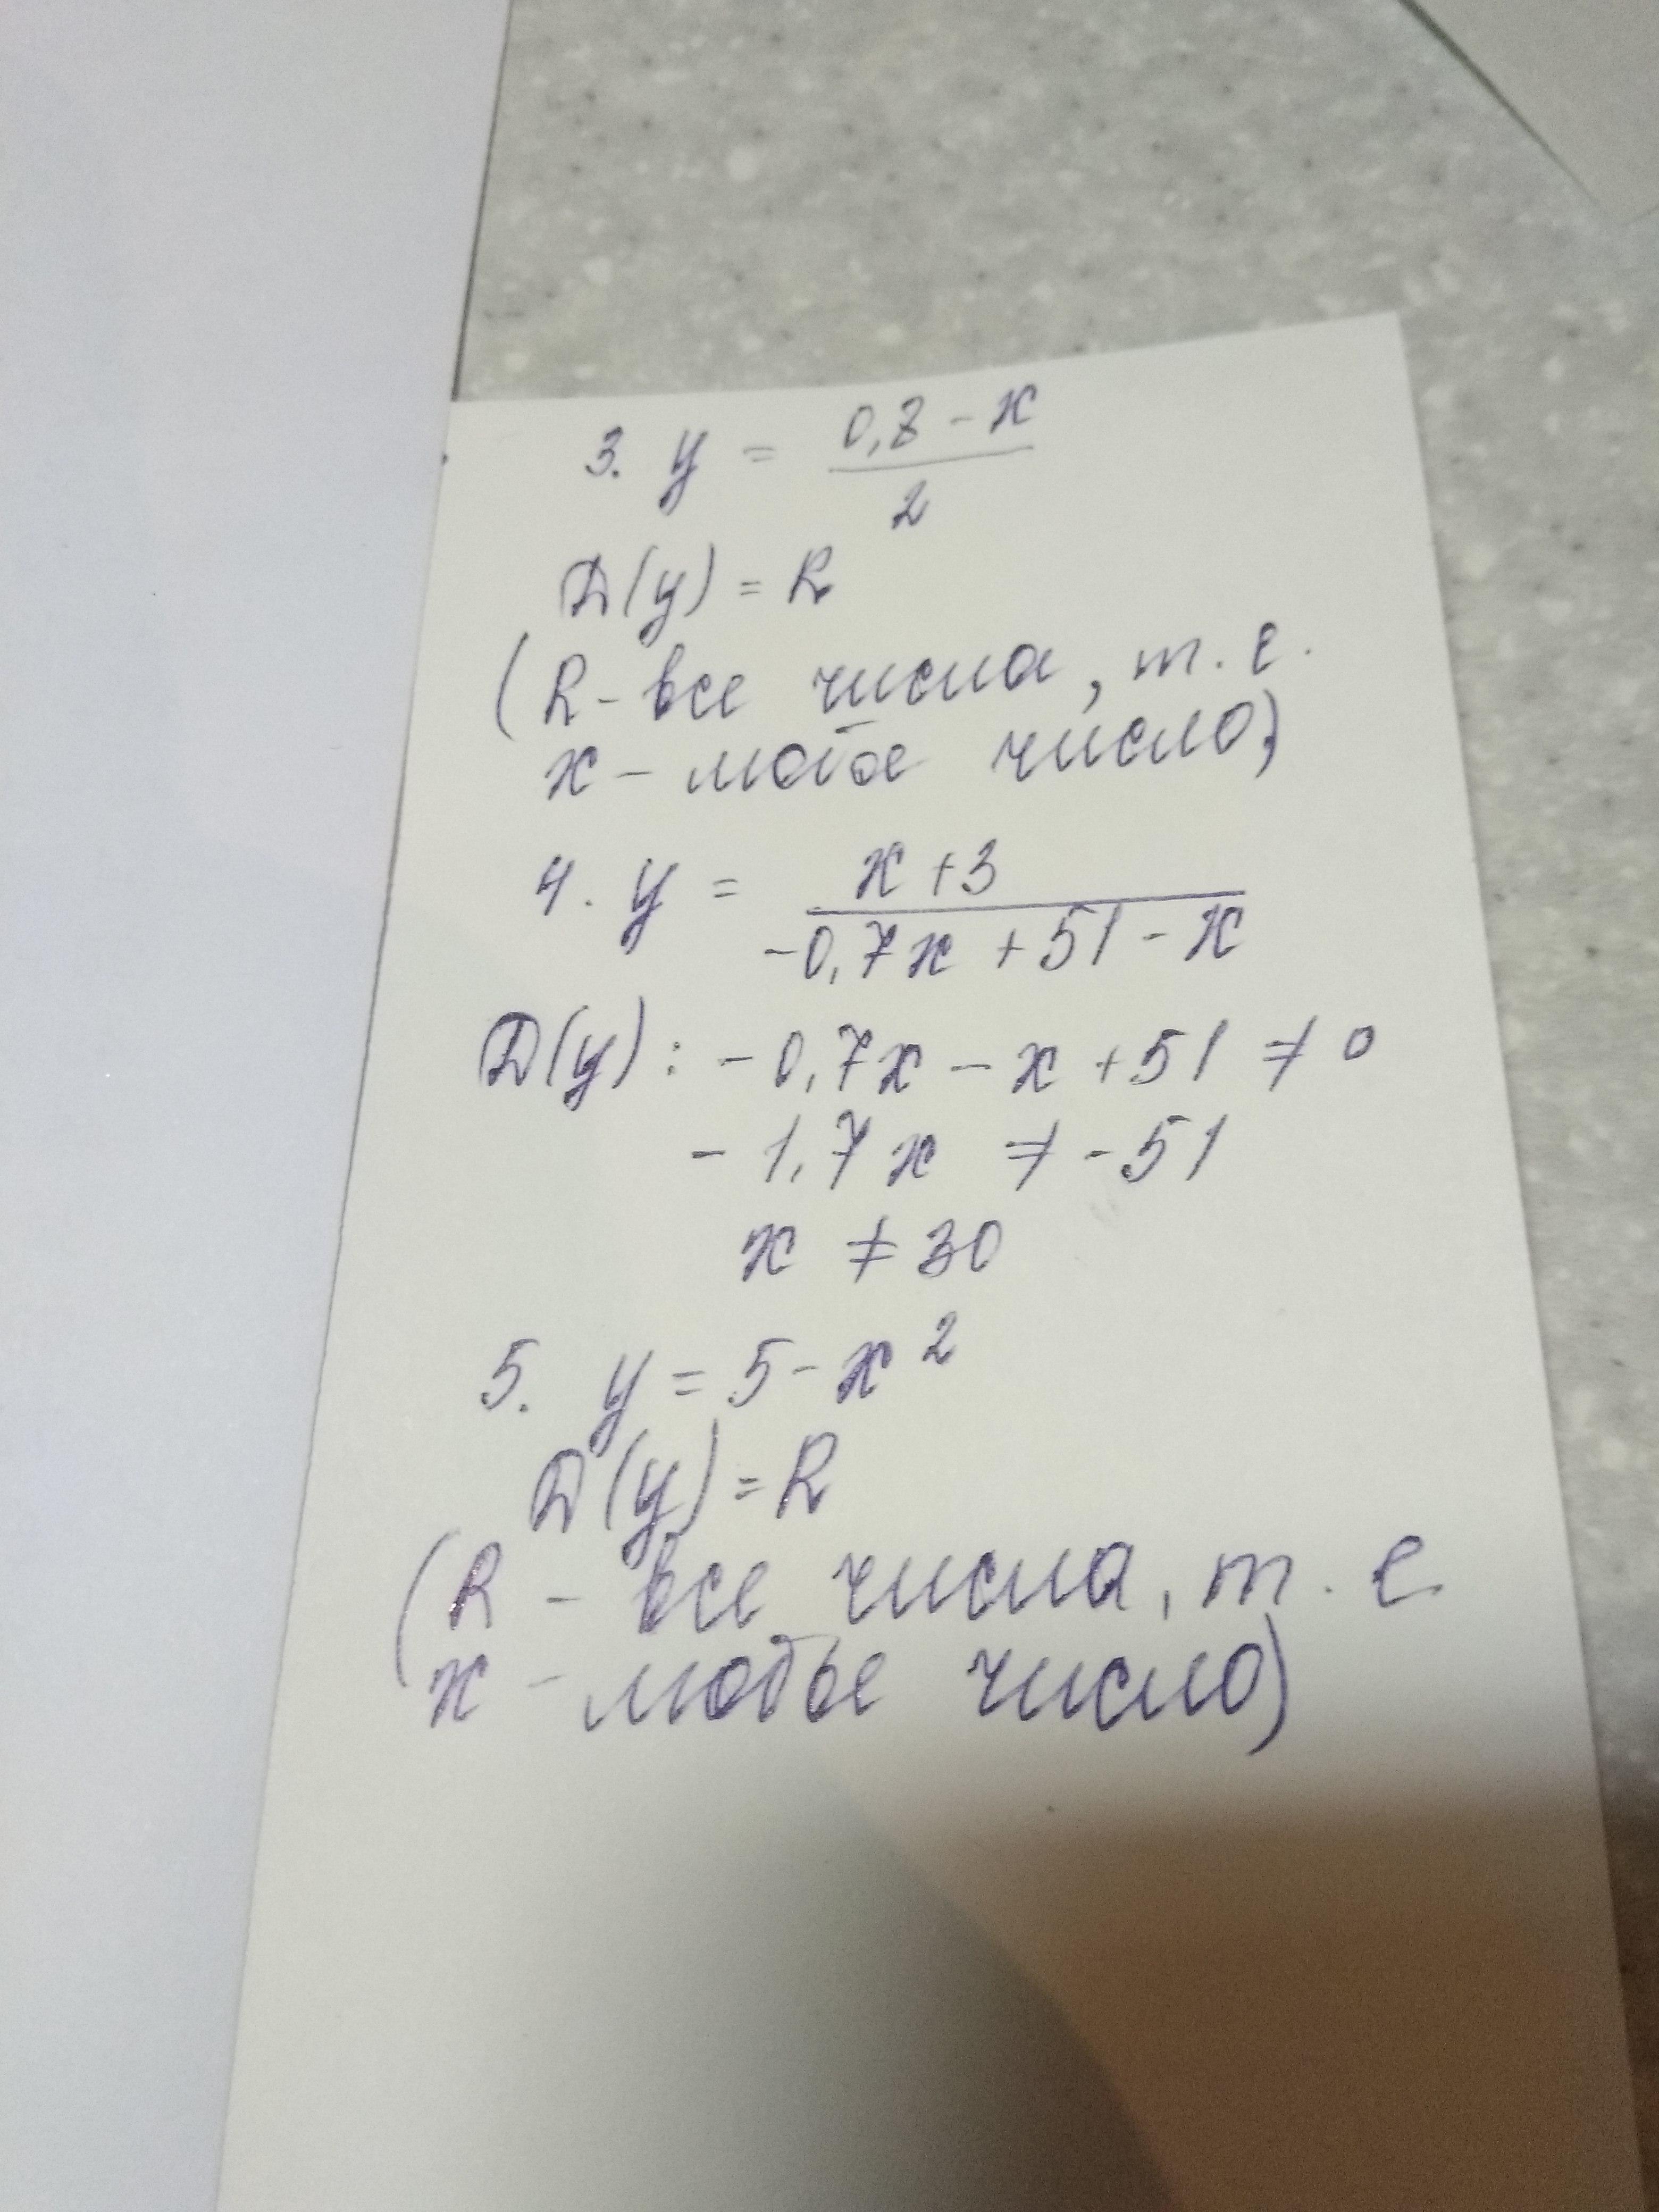 3. y = (0,8 - x)/2
D(y) = R
(R - все числа, т. е.
x - любое число)
4. y = (x + 3)/(-0,7x + 51 - x)
D(y) : - 0,7x - x + 51 ≠ 0
- 1,7x ≠ - 51
x ≠ 30
5. y = 5 - x²
D(y) = R
(R - все числа, т. е.
x - любое число)